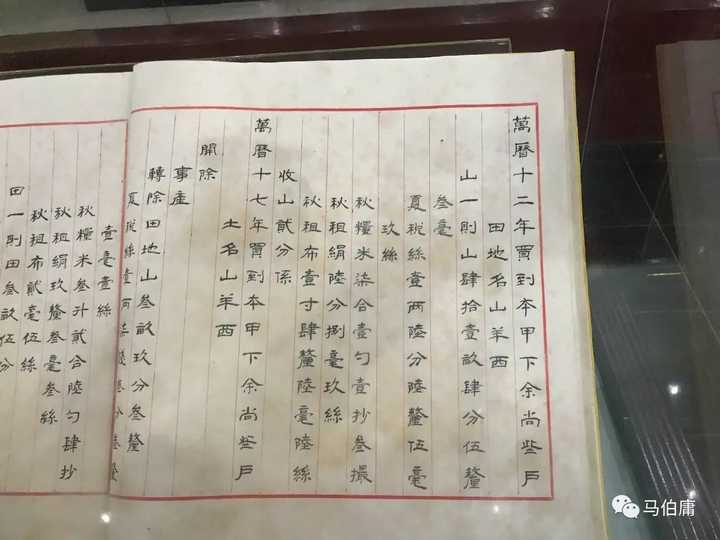 萬曆十二年買到本甲下余尚些戶
田地名山羊西
山一則山肆拾壹畝肆分伍釐
叄毫
夏稅絲壹兩陸分陸釐伍毫
玖絲
秋糧米柒合壹勺壹抄叄撮
秋租絹陸分捌毫玖絲
秋租布壹寸肆釐陸毫陸絲
收山貳分係
萬曆十七年買到本甲下余尚些戶
土名山羊西
開除
事產
轉除田地山叄畝玖分叄釐
夏稅絲壹兩柒叄分叄釐
壹毫壹絲
秋糧米叄升貳合陸勺肆抄
秋租絹玖釐叄毫叄絲
秋租布貳毫伍絲
田一則田叄畝伍分
马伯庸